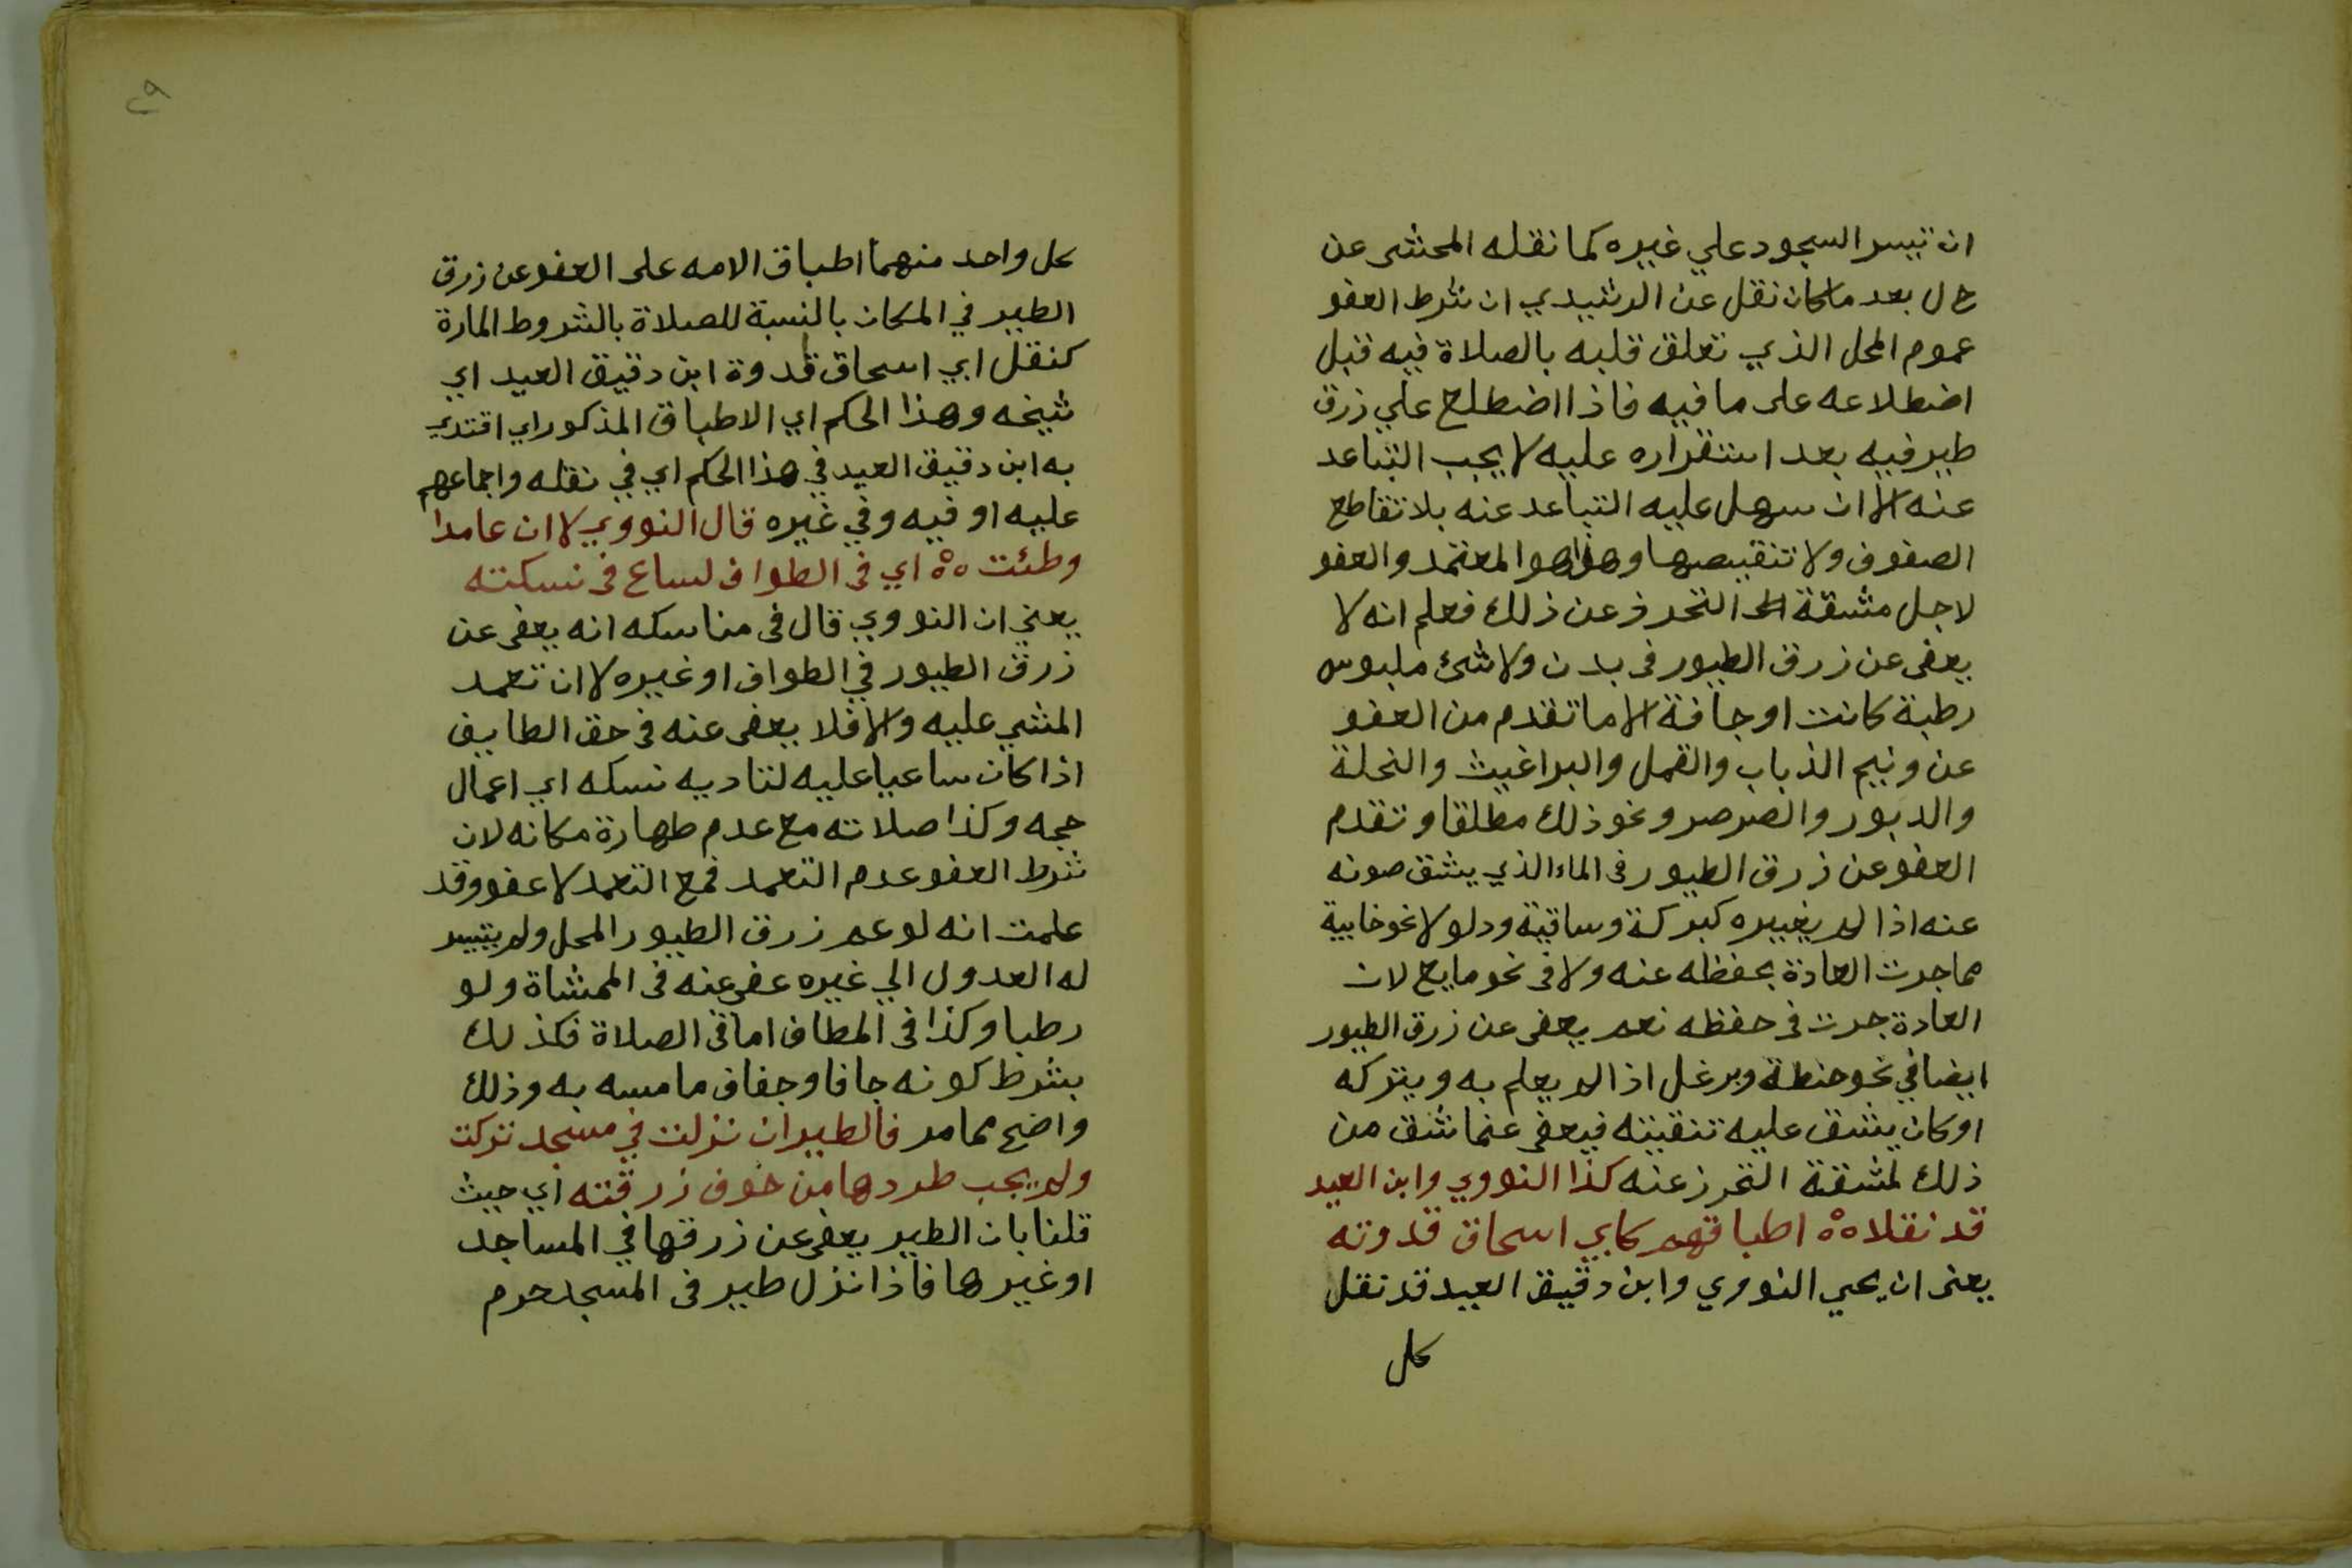 ان تيسر السجود علي غيره كما نقله المحشى عن
ح ل بعد ما كان نقل عن الرشيدي ان شرط العفو
عموم المحل الذي تعلق قلبه بالصلاة فيه قبل
اضطلاعه على ما فيه فاذا اضطلع علي زرق
طير فيه بعد استقراره عليه لا يجب التباعد
عنه الا ان سهل عليه التباعد عنه بلا تقاطع
الصفوف ولا تنقيصها وهذا هو المعتمد والعفو
لاجل مشقة التحرز عن ذلك فعلم انه لا
يعفى عن زرق الطيور فى بدن ولا شئ ملبوس
رطبة كانت او جافة الا ما تقدم من العفو
عن ونيم الذباب والقمل والبراغيث والنحلة
والدبور والصرصر ونحو ذلك مطلقا وتقدم
العفو عن زرق الطيور فى الماء الذي يشق صونه
عنه اذا لم يغيره كبركة وساقية ودلو لا نحو خابية
مما جرت العادة بحفظه عنه ولا فى نحو مايع لان
العادة جرت فى حفظه نعم يعفى عن زرق الطيور
ايضا في نحو حنطة وبرغل اذا لم يعلم به ويتركه
او كان يشق عليه تنقيته فيعفى عنما شق من
ذلك لمشقة التحرز عنه كذا النووي وابن العيد
قد نقلا ه اطباقهم كابي اسحاق قدوته
يعنى ان يحيي النووي وابن دقيق العيد قد نقل
كل
٢٩
كل واحد منهما اطباق الامه على العفو عن زرق
الطير في المكان بالنسبة للصلاة بالشروط المارة
كنقل ابي اسحاق قدوة ابن دقيق العيد اي
شيخه وهذا الحكم اي الاطباق المذكور اي اقتدي
به ابن دقيق العيد في هذا الحكم اي في نقله واجماعهم
عليه او فيه وفي غيره قال النووي لا ان عامدا
وطئت ه اي فى الطواف لساع فى نسكته
يعني ان النووي قال فى مناسكه انه يعفى عن
زرق الطيور في الطواف او غيره لا ان تعمد
المشي عليه والا فلا يعفى عنه فى حق الطايف
اذا كان ساعيا عليه لتاديه نسكه اي اعمال
حجه وكذا صلاته مع عدم طهارة مكانه لان
شرط العفو عدم التعمد فمع التعمد لا عفو وقد
علمت انه لو عم زرق الطيور المحل ولم يتيسر
له العدول الي غيره عفى عنه فى الممشاة ولو
رطبا وكذا فى المطاف اما فى الصلاة فكذلك
بشرط كونه جافا وجفاف ما مسه به وذلك
واضح مما مر فالطير ان نزلت في مسجد تركت
ولم يجب طردها من خوف زرقته اي حيث
قلنا بان الطير يعفى عن زرقها في المساجد
او غيرها فاذا نزل طير فى المسجد حرم